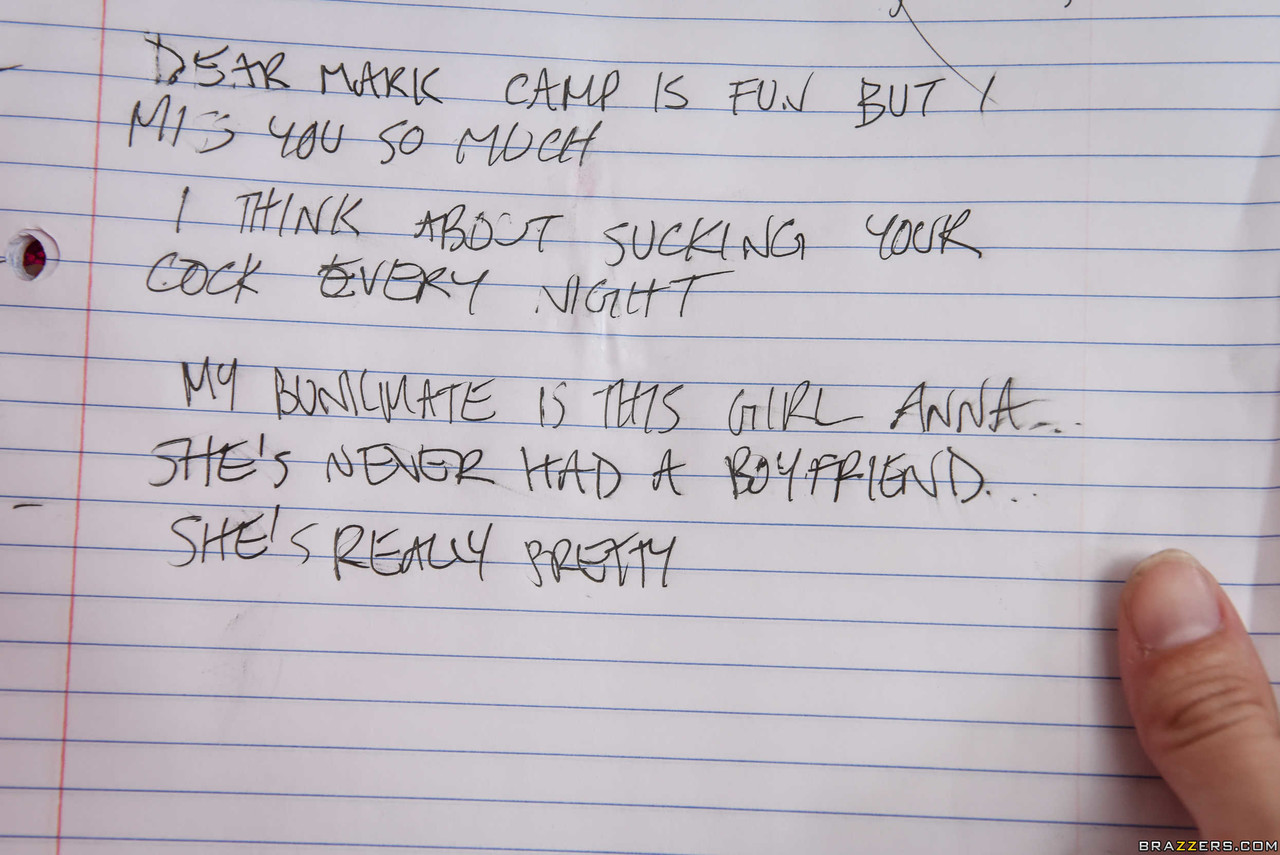 DEAR MARK CAMP IS FUN BUT I
MISS YOU SO MUCH
I THINK ABOUT SUCKING YOUR
COCK EVERY NIGHT
MY BUNKMATE IS THIS GIRL ANNA...
SHE'S NEVER HAD A BOYFRIEND...
SHE'S REALLY PRETTY
BRAZZERS.COM